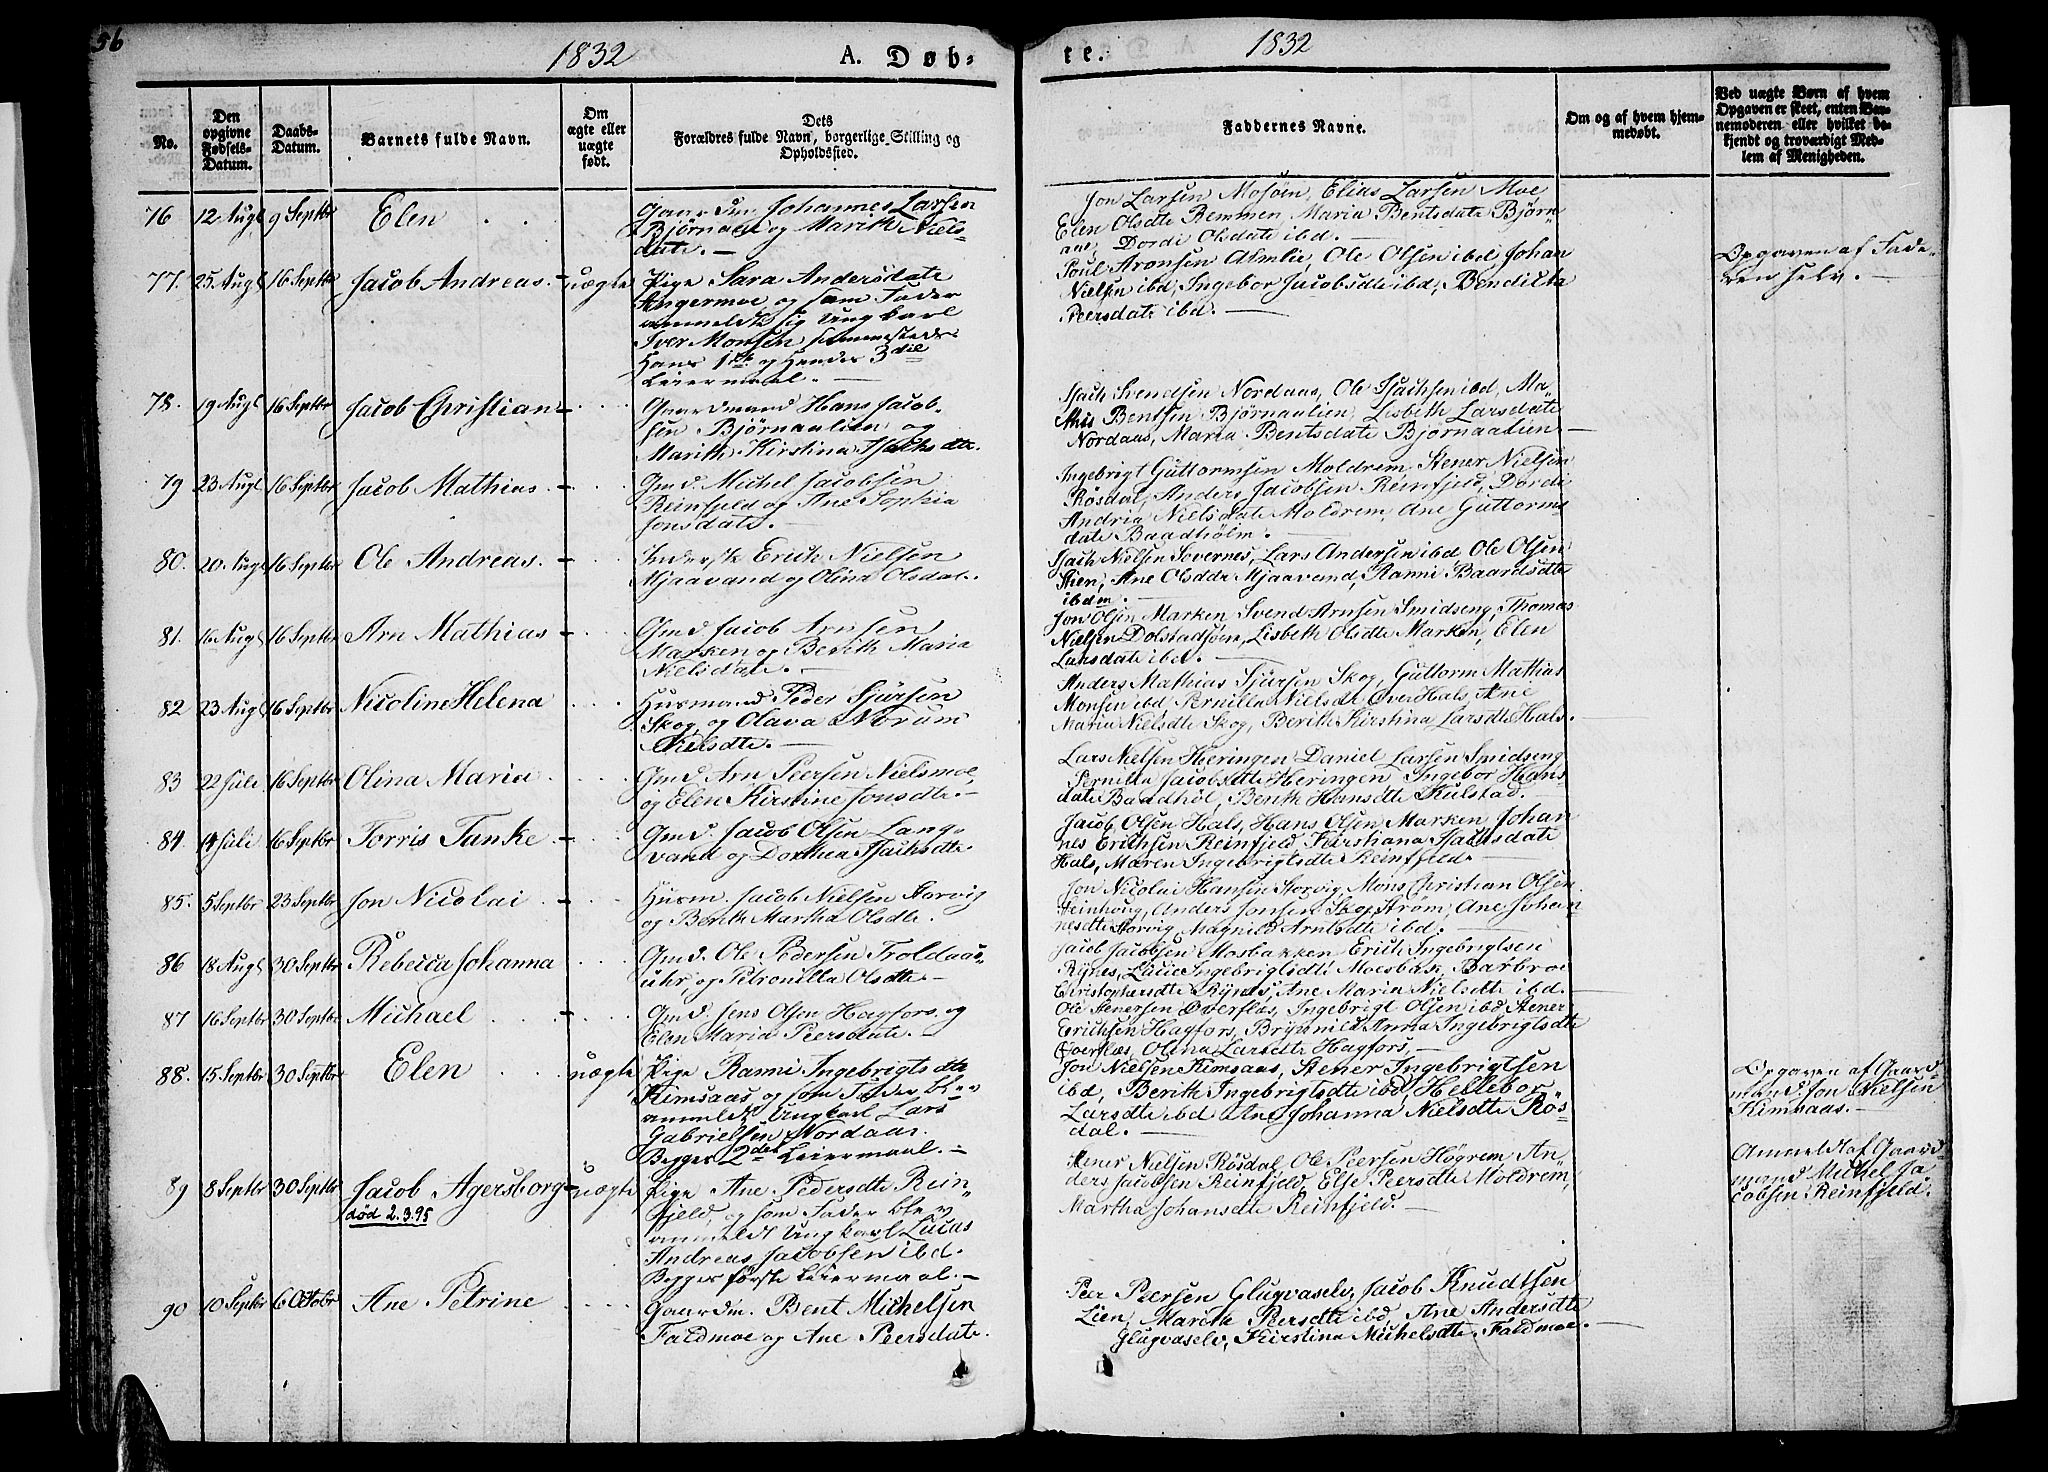 56
1832
A. Døb-
te.
1832
No.
Den
opgivne
Fødsels-
Datum.
Daabs-
Datum.
Barnets fulde Navn.
Om
ægte eller
uægte
født.
Dets
Forældres fulde Navn, borgerlige Stilling og
Opholdssted.
Faddernes Navne.
Om og af hvem hjem-
medøbt.
Ved uægte Børn af hvem
Opgaven er skeet, enten Bar-
nemoderen eller hvilket be-
kjendt og troværdigt Med-
lem af Menigheden.
76 12 Augl 9 Septbr Elen
Gaardm. Johannes Larsen
Bjørnaae og Marith Niels-
datr.
Jon Larsen Mosøin, Elias Larsen Moe
Elen Olsdtr Remmen, Maria Bentsdatr Bjørn-
aae, Dordi Olsdatr ibd.
77. 25 Augl 16 Septbr Jacob Andreas. uægte
Pige Sara Andersdatr
Angermoe og som Fader
anmeldte sig Ungkarl
Iver Monsen sammesteds
Hans 1ste og Hendes 3die
Leiermaal.
Poul Aronsen Almlie, Ole Olsen ibd Johan
Nielsen ibd, Ingebor Jacobsdtr ibd, Bendikta
Peersdatr ibd.
Opgaven af Fade-
ren selv.
78. 19 Augl 16 Septbr Jacob Christian
Gaardmand Hans Jacob-
sen Bjørnaalien og
Marith Kirstina Isachsdtr.
Isach Svendsen Nordaas, Ole Isachsen ibd, Ma-
this Bentsen Bjørnaalien, Lisbeth Larsdatr
Nordaas, Maria Bentsdatr Bjørnaalien
79 23 Augl 16 Septbr Jacob Mathias
Gmd. Michel Jacobsen
Reinfjeld og Ane Sophia
Jonsdatr.
Ingebrigt Guttormsen Moldrem, Stener Nielsen
Røsdal, Anders Jacobsen Reinfjeld, Dordi
Andria Nielsdatr Moldrem, Ane Guttorms
datr Baadhølm.
80. 20 Augl 16 Septbr Ole Andreas.
Inderst Erich Nielsen
Mjaavand og Olina Olsdatr.
Isach Nielsen Severnes, Lars Andersen ibd Ole Olsen
Stien, Ane Olsddr Mjaavand, Ranni Baardsdtr
ibdm.
81. 16 Augl 16 Septbr Arn Mathias
Gmd. Jacob Arnsen
Marken og Berith Maria
Nielsdatr.
Jon Olsen Marken Svend Arnsen Smidseng, Thomas
Nielsen Dolstadsøen, Lisbeth Olsdtr Marken, Elen
Larsdatr ibd.
82 23 Augl 16 Septbr Nicoline Helena
Husmand Peder Sjursen
Skog, og Olava Norum
Nielsdtr.
Anders Mathias Sjursen Skog, Guttorm Mathias
Monsen ibd, Pernilla Nielsdtr Over Hals, Ane
Maria Nielsdtr Skog, Berith Kirstina Larsdtr Hals.
83 22 Juli 16 Septbr Olina Maria
Gmd Arn Peersen Nielsmoe,
og Elen Kirstine Jonsdtr.
Lars Nielsen Heringen, Daniel Larsen Smidseng
Pernilla Jacobsdtr Heringen, Ingebor Hans
datr Baadhøl, Berith Hansdtr Kulstad.
84. 14 Juli 16 Septbr Torris Tanke
Gmd. Jacob Olsen Lang-
vand og Dorthea Isachsdtr.
Jacob Olsen Hals, Hans Olsen Marken Johan
nes Erichsen Reinfjeld, Kirstiana Isachsdatr
Hals, Maren Ingebrigtsdtr Reinfjeld.
85. 5 Septbr 23 Septbr Jon Nicolai
Husm. Jacob Nielsen Storvig
og Berith Martha Olsdtr.
Jon Nicolai Hansen Storvig, Mons Christian Olsen
Steinhoug, Anders Jonsen Skog Strøm, Ane Johan
nesdtr Storvig, Magnild Arntsdtr ibd.
86 18 Augl 30 Septbr Rebecca Johanna
Gmd. Ole Pedersen Troldaas-
uhr, og Petronilla Olsdtr
Jacob Jacobsen Mosbakken Erich Ingebrigtsen
Rynes, Lucie Ingebrigtsdtr Moesbak, Barbroe
Christophersdtr Rynes, Ane Maria Nielsdtr ibd.
87 16 Septbr 30 Septbr Michael
Gmd. Jens Olsen Hagfors, og
Elen Maria Peersdatr.
Ole Stenersen Øverflæs, Ingebrigt Olsen ibd Stener
Erichsen Hagfors, Brynnild Anna Ingebrigtsdtr
Øverflæs, Olina Larsdtr Hagfors,
88. 15 Septbr 30 Septbr Elen uægte
Pige Ranni Ingebrigtsdtr
Kimsaas og som Fader blev
anmeldt Ungkarl Lars
Gabrielsen Nordaas.
Begges 2det Leiermaal.
Jon Nielsen Kimsaas, Stener Ingebrigtsen
ibd, Berith Ingebrigtsdtr ibd, Hellebor
Larsdtr ibd Ane Johanna Nielsdtr Røs-
dal.
Opgaven af Gaard-
mand Jon Nielsen
Kimsaas.
89 8 Septbr 30 Septbr Jacob Agersborg uægte
død 2.3.95
Pige Ane Pedersdtr Rein-
fjeld, og som Fader blev
anmeldt Ungkarl Lucas
Andreas Jacobsen ibd.
Begges første Leiermaal.
Stener Nielsen Røsdal, Ole Peersen Høgrem, An
ders Jacobsen Reinfjeld, Else Peersdtr Moldrem,
Martha Johansdtr Reinfjeld.
Anmeldt af Gaard
mand Michel Ja
cobsen Reinfjeld.
90 10 Septbr 6 Octobr Ane Petrine
Gaardm. Bent Michelsen
Faldmoe og Ane Peersdatr.
Peer Peersen Glugvaselv, Jacob Knudtsen
Lien, Marith Peersdtr ibd, Ane Andersdtr
Glugvaselv, Kirstina Michelsdtr Faldmoe.